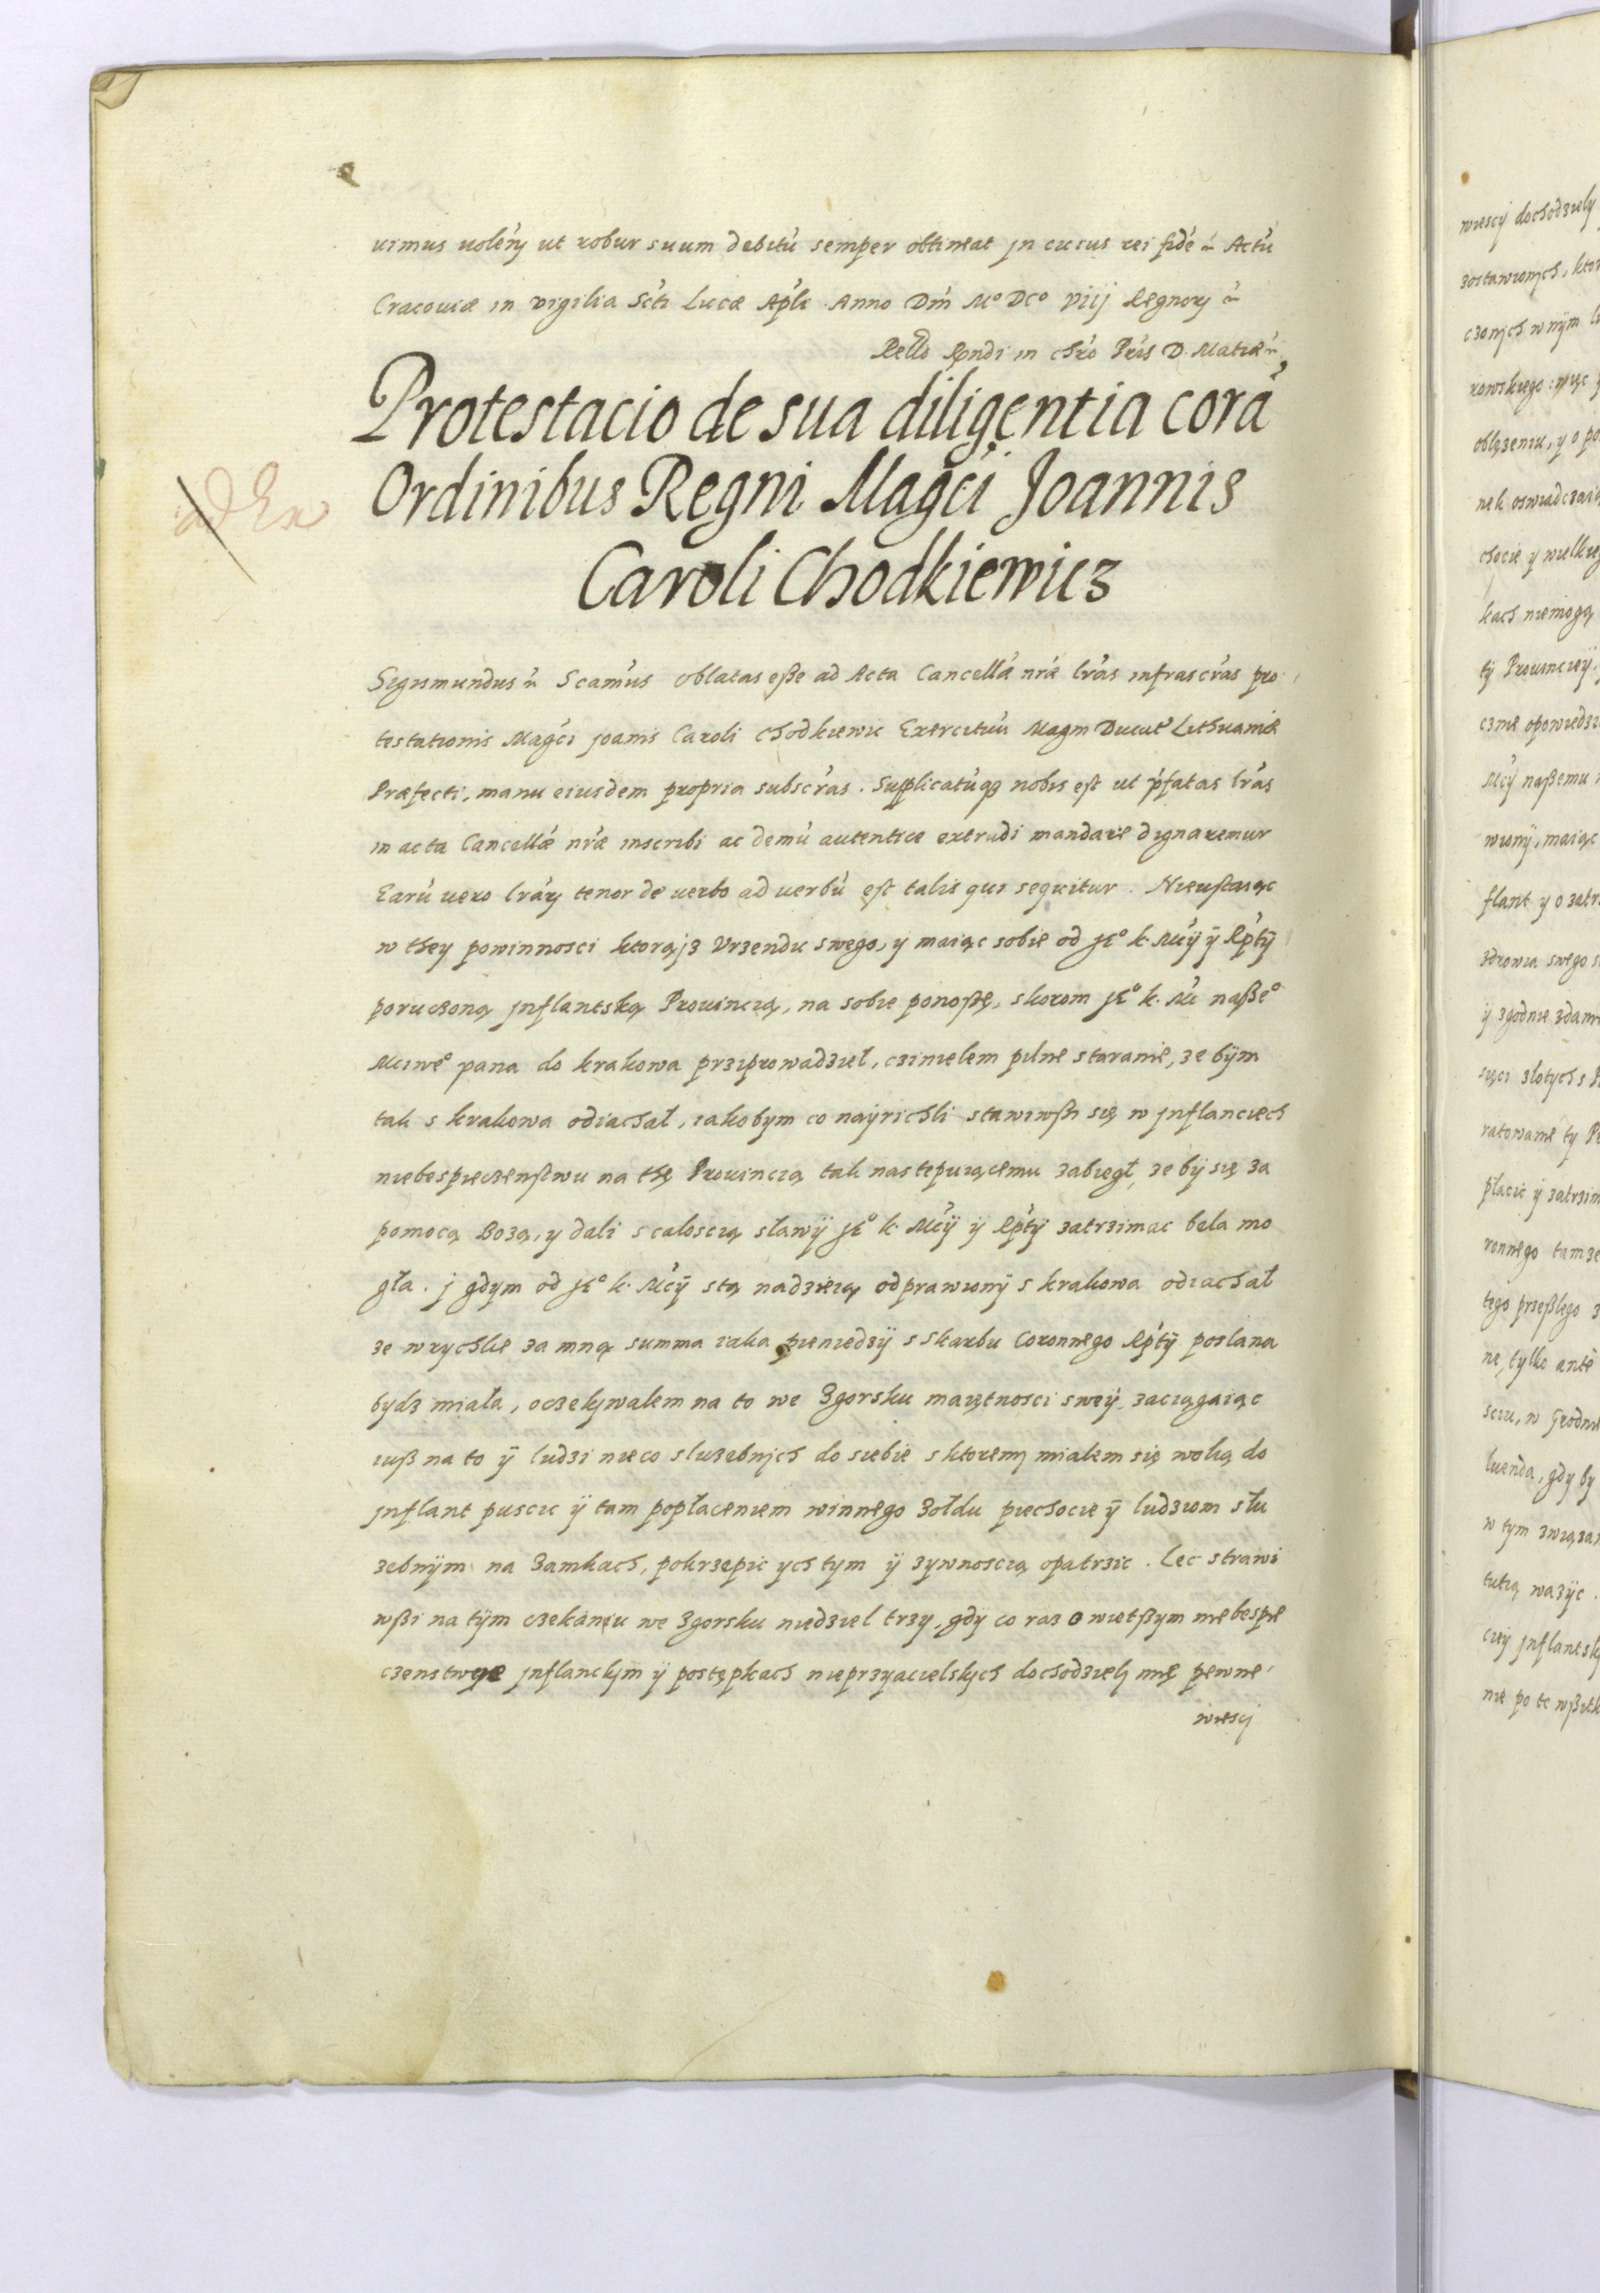 uimus uolẽy ut robur suum debitũ semper obtineat jn cuius rei fidẽ ẽ Actũ
Cracouiæ in vigilia Scti Lucæ Apli Anno Dni Mº DCº viij Regnory ẽ
Rello Rndi in chro Pris D. Matiæ
Protestacio de sua diligentia corã
Ordinibus Regni Magci Joannis
Caroli Chodkiewicz
ad Ex
Sigismundus ẽ Scamus oblatas eße ad Acta Cancellæ nræ lras infrascras pro
testationis Magci joanis Caroli Chodkiewic Exercituũ Magni Ducat Lithuaniæ
Præfecti, manu eiusdem propria subscras. Supplicatũq3 nobis est ut pfatas lras
in acta Cancellæ nræ inscribi ac demũ autentice extradi mandare dignaremur
Earũ uero lrary tenor de uerbo ad uerbũ est talis qui sequitur. Nieustaiąc
w they powinnosci ktorąj3 Vrzendu swego, ÿ maiąc sobie od jeº k. Mcÿ ÿ Rptÿ
poruczoną jnflantską Prouincią, na sobie ponoßę, skorom jeº k. Mc naßeº
Mciweº pana do krakowa prziprowadzieł, czinielem pilne staranie, ze bÿm
tak s krakowa odiachał, iakobym co nayrichli stawiwßi się w jnflanciech
niebespieczenstwu na thę Prouincią tak nastepuiącemu zabiegł, ze bÿ się za
pomocą Bozą, y dali s caloscią sławÿ jeº k. Mcÿ ÿ Rptÿ zatrzimac bela mo
gła. j gdym od jeº k. Mcÿ stą nadzieią odprawionÿ s krakowa odiachał
ze wrychle za mną summa iaka pieniedzÿ s skarbu Coronnego Rptÿ posłana
bydz miała, oczekywalem na to we Zgorsku maiętnosci sweÿ zaciągaiąc
iuß na to ÿ ludzi nieco sluzebnjch do siebie s ktoremj mialem się wolą do
jnflant puscic ÿ tam popłaceniem winnego zołdu piechocie ÿ ludziom słu
zebnÿm na zamkach, pokrzepic ych tym ÿ zywnoscią opatrzic. Lec strawi
wßi na tÿm czekaniu we Zgorsku niedziel trzy, gdÿ co raz o wietßym niebespie
czenstwye jnflanckjm ÿ postępkach nieprzyacielskjch dochodzielj mię pewne
wiescj
wiescÿ dochodziely
zostawionjch, ktor
czonjch w nÿm
rowskiego: więc
oblęzeniu, y o po
nek oswiadczaią
chocie y wielkie
kach niemogą
tÿ Prouincieÿ
czenie opowiedzi
Mcÿ naßemu
wionÿ, maiąc
flant y o zatr
zdrowia swego s
ÿ zgodnie zdani
sięci złotych s
ratowanie ty P
płacic ÿ zatrzim
ronnego tamze
tego przeßlego
ne, tylko
sciu, w Grodnie
luenda, gdy by
w tym związan
tutią wazÿc
cieÿ jnflantsk
nie po te wßitk